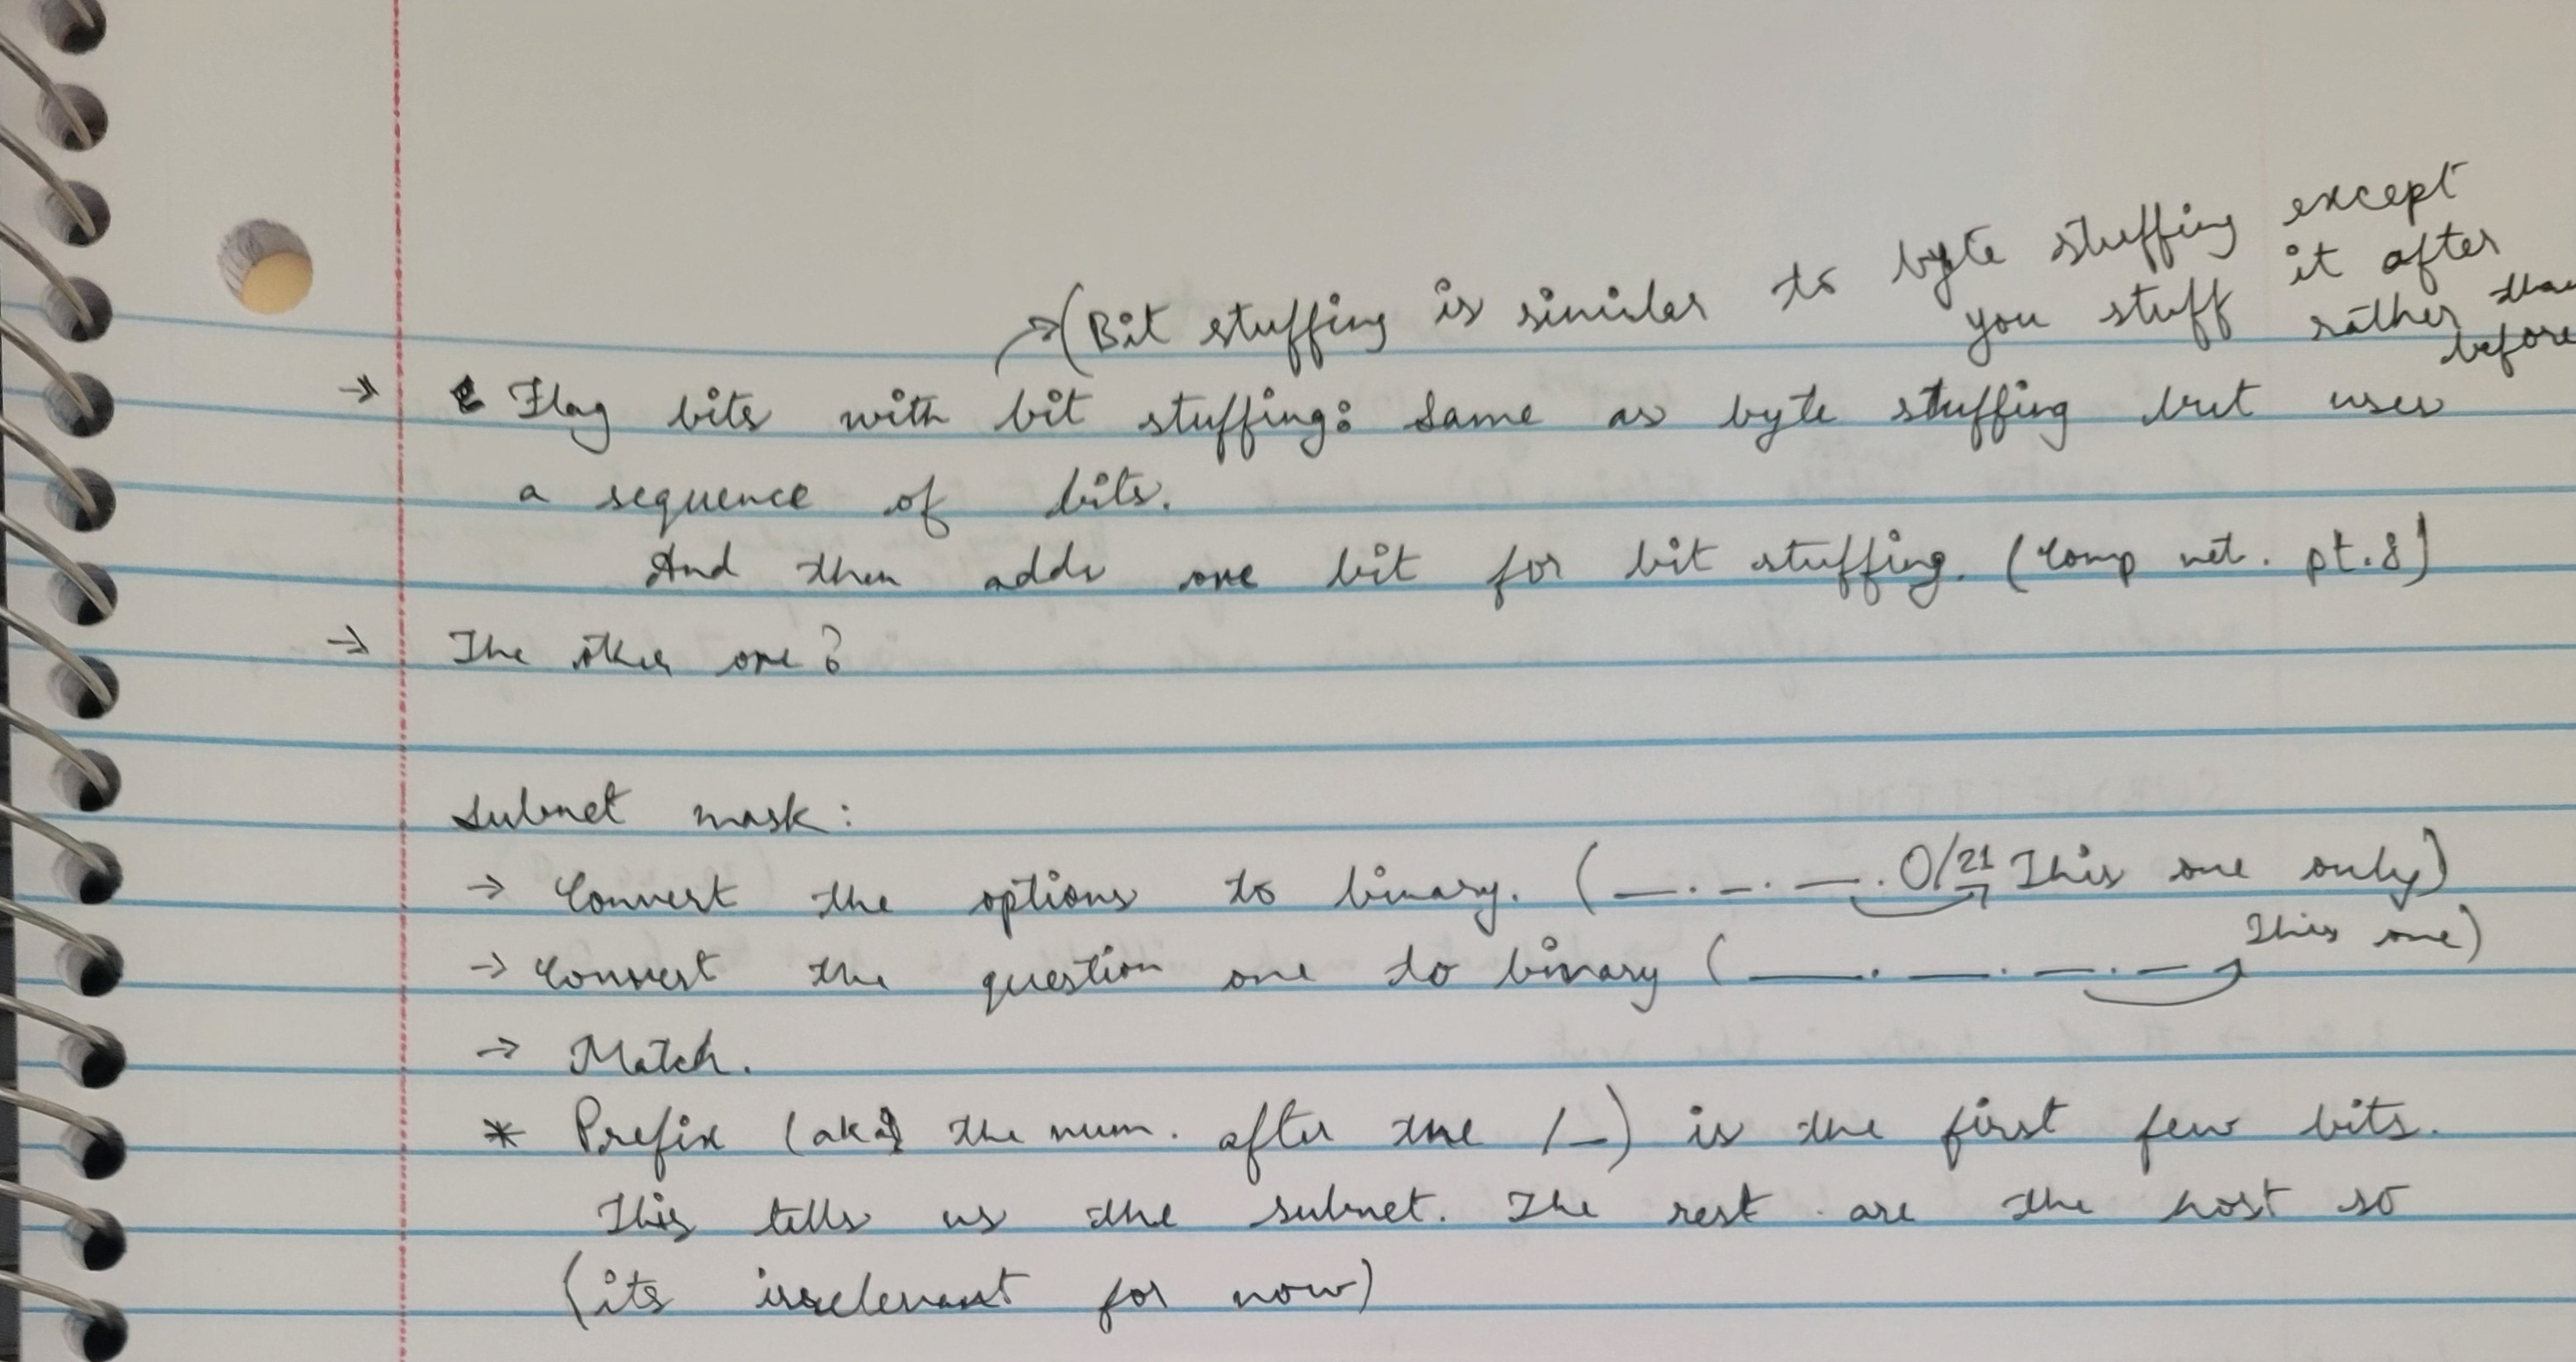 (Bit stuffing is similar to byte stuffing except
you stuff it after
rather than
before
→ Flag bits with bit stuffing: Same as byte stuffing but uses
a sequence of bits.
And then adds one bit for bit stuffing. (Comp net. pt.8)
→ The other one?
Subnet mask:
→ Convert the options to binary. (_._._.0/21 This one only)
→ Convert the question one to binary (_._._._ This one)
→ Match.
* Prefix (aka the num. after the /_) is the first few bits.
This tells us the subnet. The rest are the host so
(its irrelevant for now)